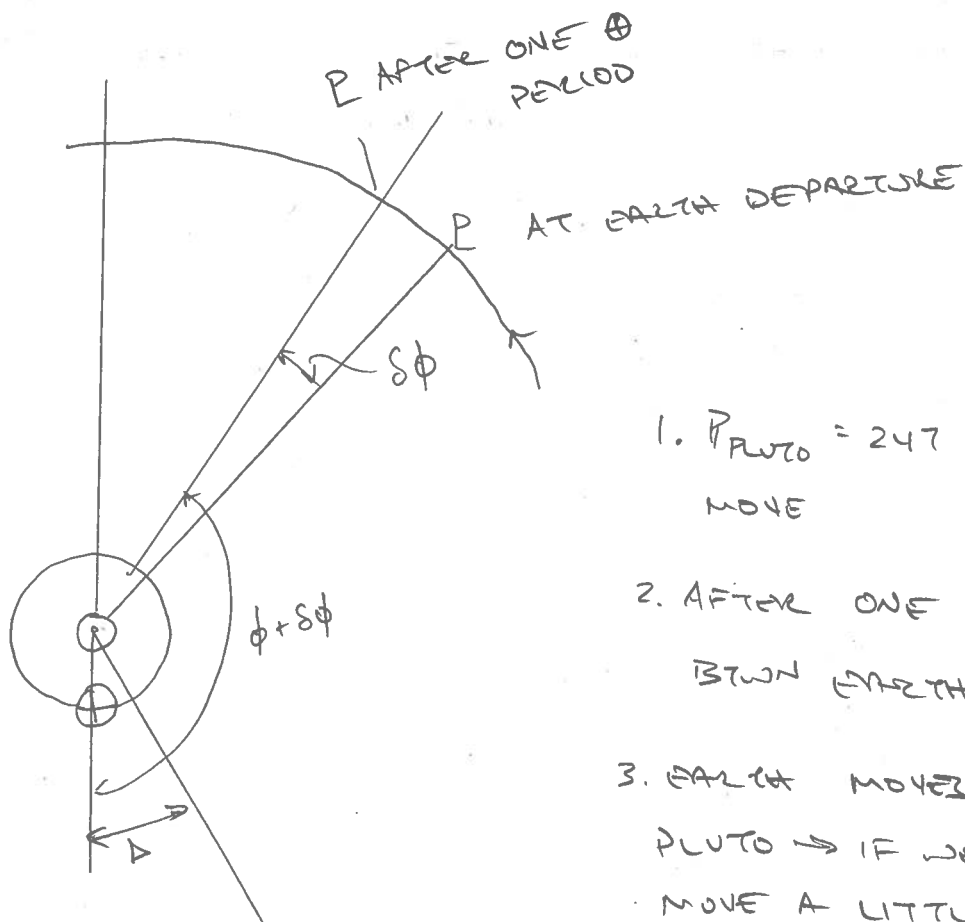 P AFTER ONE ⊕
PERIOD
P AT EARTH DEPARTURE
δϕ
ϕ+δϕ
Δ
1. P PLUTO = 247
MOVE
2. AFTER ONE
BTWN EARTH
3. EARTH MOVES
PLUTO → IF
MOVE A LITTL